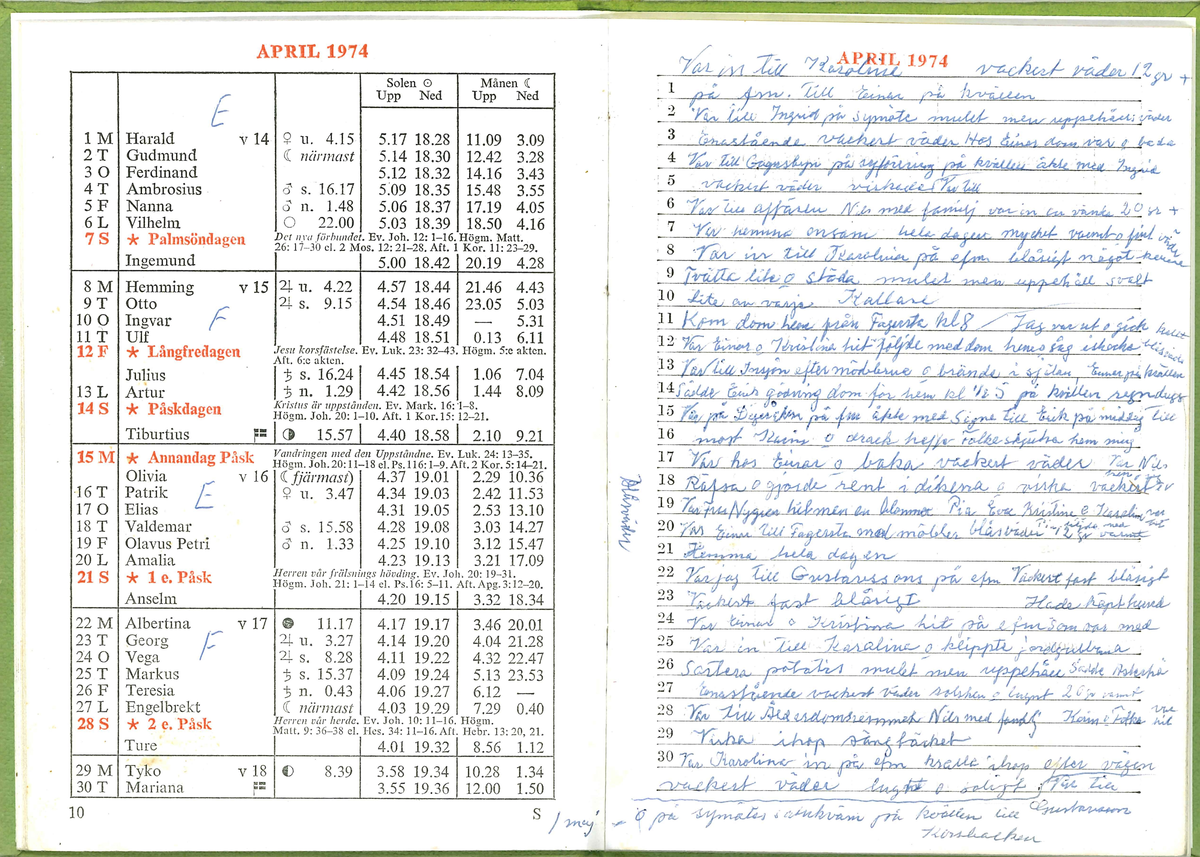 APRIL 1974
Solen ☉ Månen ☾
Upp Ned Upp Ned
E
1 M Harald v 14 ♀ u. 4.15 5.17 18.28 11.09 3.09
2 T Gudmund ☾ närmast 5.14 18.30 12.42 3.28
3 O Ferdinand 5.12 18.32 14.16 3.43
4 T Ambrosius ♂ s. 16.17 5.09 18.35 15.48 3.55
5 F Nanna ♂ n. 1.48 5.06 18.37 17.19 4.05
6 L Vilhelm ○ 22.00 5.03 18.39 18.50 4.16
7 S * Palmsöndagen Det nya förbundet. Ev. Joh. 12: 1–16. Högm. Matt.
26: 17–30 el. 2 Mos. 12: 21–28. Aft. 1 Kor. 11: 23–29.
Ingemund 5.00 18.42 20.19 4.28
8 M Hemming v 15 ♃ u. 4.22 4.57 18.44 21.46 4.43
9 T Otto ♃ s. 9.15 4.54 18.46 23.05 5.03
10 O Ingvar F 4.51 18.49 — 5.31
11 T Ulf 4.48 18.51 0.13 6.11
12 F * Långfredagen Jesu korsfästelse. Ev. Luk. 23: 32–43. Högm. 5:e akten.
Aft. 6:e akten.
Julius ♄ s. 16.24 4.45 18.54 1.06 7.04
13 L Artur ♄ n. 1.29 4.42 18.56 1.44 8.09
14 S * Påskdagen Kristus är uppstånden. Ev. Mark. 16: 1–8.
Högm. Joh. 20: 1–10. Aft. 1 Kor. 15: 12–21.
Tiburtius ◑ 15.57 4.40 18.58 2.10 9.21
15 M * Annandag Påsk Vandringen med den Uppståndne. Ev. Luk. 24: 13–35.
Högm. Joh. 20: 11–18 el. Ps. 116: 1–9. Aft. 2 Kor. 5: 14–21.
Olivia v 16 ☾ fjärmast 4.37 19.01 2.29 10.36
16 T Patrik E ♀ u. 3.47 4.34 19.03 2.42 11.53
17 O Elias 4.31 19.05 2.53 13.10
18 T Valdemar ♂ s. 15.58 4.28 19.08 3.03 14.27
19 F Olavus Petri ♂ n. 1.33 4.25 19.10 3.12 15.47
20 L Amalia 4.23 19.13 3.21 17.09
21 S * 1 e. Påsk Herren vår frälsnings hövding. Ev. Joh. 20: 19–31.
Högm. Joh. 21: 1–14 el. Ps. 16: 5–11. Aft. Apg. 3: 12–20.
Anselm 4.20 19.15 3.32 18.34
22 M Albertina v 17 ● 11.17 4.17 19.17 3.46 20.01
23 T Georg F ♃ u. 3.27 4.14 19.20 4.04 21.28
24 O Vega ♃ s. 8.28 4.11 19.22 4.32 22.47
25 T Markus ♄ s. 15.37 4.09 19.24 5.13 23.53
26 F Teresia ♄ n. 0.43 4.06 19.27 6.12 —
27 L Engelbrekt ☾ närmast 4.03 19.29 7.29 0.40
28 S * 2 e. Påsk Herren vår herde. Ev. Joh. 10: 11–16. Högm.
Matt. 9: 36–38 el. Hes. 34: 11–16. Aft. Hebr. 13: 20, 21.
Ture 4.01 19.32 8.56 1.12
29 M Tyko v 18 ◐ 8.39 3.58 19.34 10.28 1.34
30 T Mariana 3.55 19.36 12.00 1.50
10 S
APRIL 1974
Var in till Karolina vackert väder 12 gr +
1 på fm. till Einar på kvällen
2 Var till Ingrid på symöte mulet men uppehåll väder
3 Enastående vackert väder Hos Einar dom var o bada
4 Var till på syförening på kvällen åkte med Ingrid
5 vackert väder virkade Var till
6 Var till affären Nils med familj var in en vända 20 gr +
7 Var hemma ensam hela dagen mycket varmt o fint väder
8 Var in till Karolina på efm blåsigt något
9 Tvätta lite o städa mulet men uppehåll svalt
10 lite av varje Kallare
11 Kom dom hem från Fagersta kl 8 / Jag var ut o gick kallt
12 Var Einar o Kristina hit följde med dom hem o såg ishockey blåsväder
13 Var till efter möblerna o brände i Einar på kvällen
14 Sådde Erik gödning dom for hem kl 1/2 5 på kvällen
15 Var på på fm åkte med Signe till Erik på middag till
16 most Karin o drack kaffe Folke skjutsa hem mig
17 Var hos Einar o baka vackert väder Var Nils
18 Räfsa o gjorde rent i dikena o virka vackert
Blåsväder
19 Var fru Nygren hit med en blomma Pia Eva Kristina o Karolin var hit
20 Var Einar till Fagersta med möbler blåsväder 12 gr varmt
21 Hemma hela dagen
22 Var jag till Gustavssons på efm Vackert fast blåsigt
23 Vackert fast blåsigt Hade köpt hund
24 Var Einar o Kristina hit på efm som var med
25 Var in till Karolina o klippte
26 Sortera potatis mulet men uppehåll Sådde
27 Enastående vackert väder solsken o lugnt 20 gr varmt
28 Var till Ålderdomshemmet Nils med familj Karin o Folke var hit
29 Virka ihop sängtäcket
30 Var Karolina in på efm kratta ihop efter vägen
vackert väder lugnt o soligt Var till
1 maj – o på symöte på kvällen till Gustavsson
Korsbacken